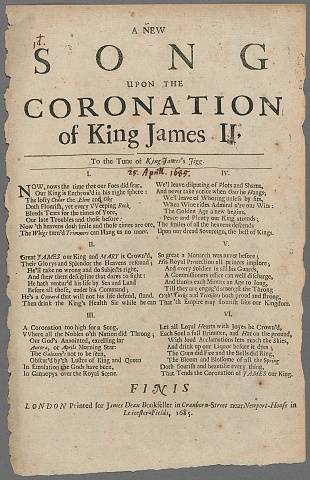 A NEW
SONG
UPON THE
CORONATION
of King James II.
To the Tune of King James's Jigg.
25. April. 1685.
I.
NOW, nows the time that our Foes did fear,
Our King is Enthron'd in his right Sphere:
The lofty Oak, the Elm and
Doth Flourish, yet every Weeping Rock,
Bleeds Tears for the times of Yore,
Our late Troubles and those before:
Now th' heavens doth smile and those times are ore,
The Whigs turn'd Trimmers can Hang us no more.
II.
Great JAMES our King and MARY is Crown'd,
Their Glorys and Splendor the Heavens resound;
He'll take no wrong and do Subjects right,
And fleer them these descrise that dares to fight:
He hath ventur'd his life by Sea and Land
Before all those, under his Command;
He's a Coward that will not his life defend, stand,
Then drink the King's Health Sir while he can
III.
A Coronation too high for a Song,
Where all the Nobles o'th Nation did Throng;
Our God's Anointed, excelling far
Aurora, or Aprils Morning Star:
The Colours not to be seen,
Obscur'd by th' Lustre of King and Queen
In Emulation the Gods have been,
In Cannopys over the Royal Scene.
IV.
We'l leave disputing of Plots and Shams,
And never take notice when Oates he Hangs;
We'l leave of Whoring unless by fits,
When Wise tides Admiral o're our Wits:
The Golden Age a new begins,
Peace and Plenty our King attends;
The smiles of all the heavens defends
Upon our dread Sovereign, the best of Kings.
V.
So great a Monarch was never before;
His Royal Protection all princes implore;
And every Soldier is of his Guards,
A Commission'd officer each will discharge,
And thanks each Monter an Age to long,
Till they are engag'd amongst the Throng
and Tories both proud and strong,
That th' Empire may flourish like our Kingdom.
VI.
Let all Loyal Hearts with Joyes be Crown'd,
Each Soul a full Brimmer, and Hat on the ground,
With loud Acclamations less reach the Skies,
And drink up our Liquor before it dies;
The Guns did Fire and the Bells did Ring,
The Bloom and Blossome of all the Spring
Doth flourish and beautifie every thing,
That Tends the Coronation of JAMES our King.
FINIS
LONDON Printed for James Dean Bookseller in Cranborn-Street near Newport-House in
Leicester-Fields, 1685.